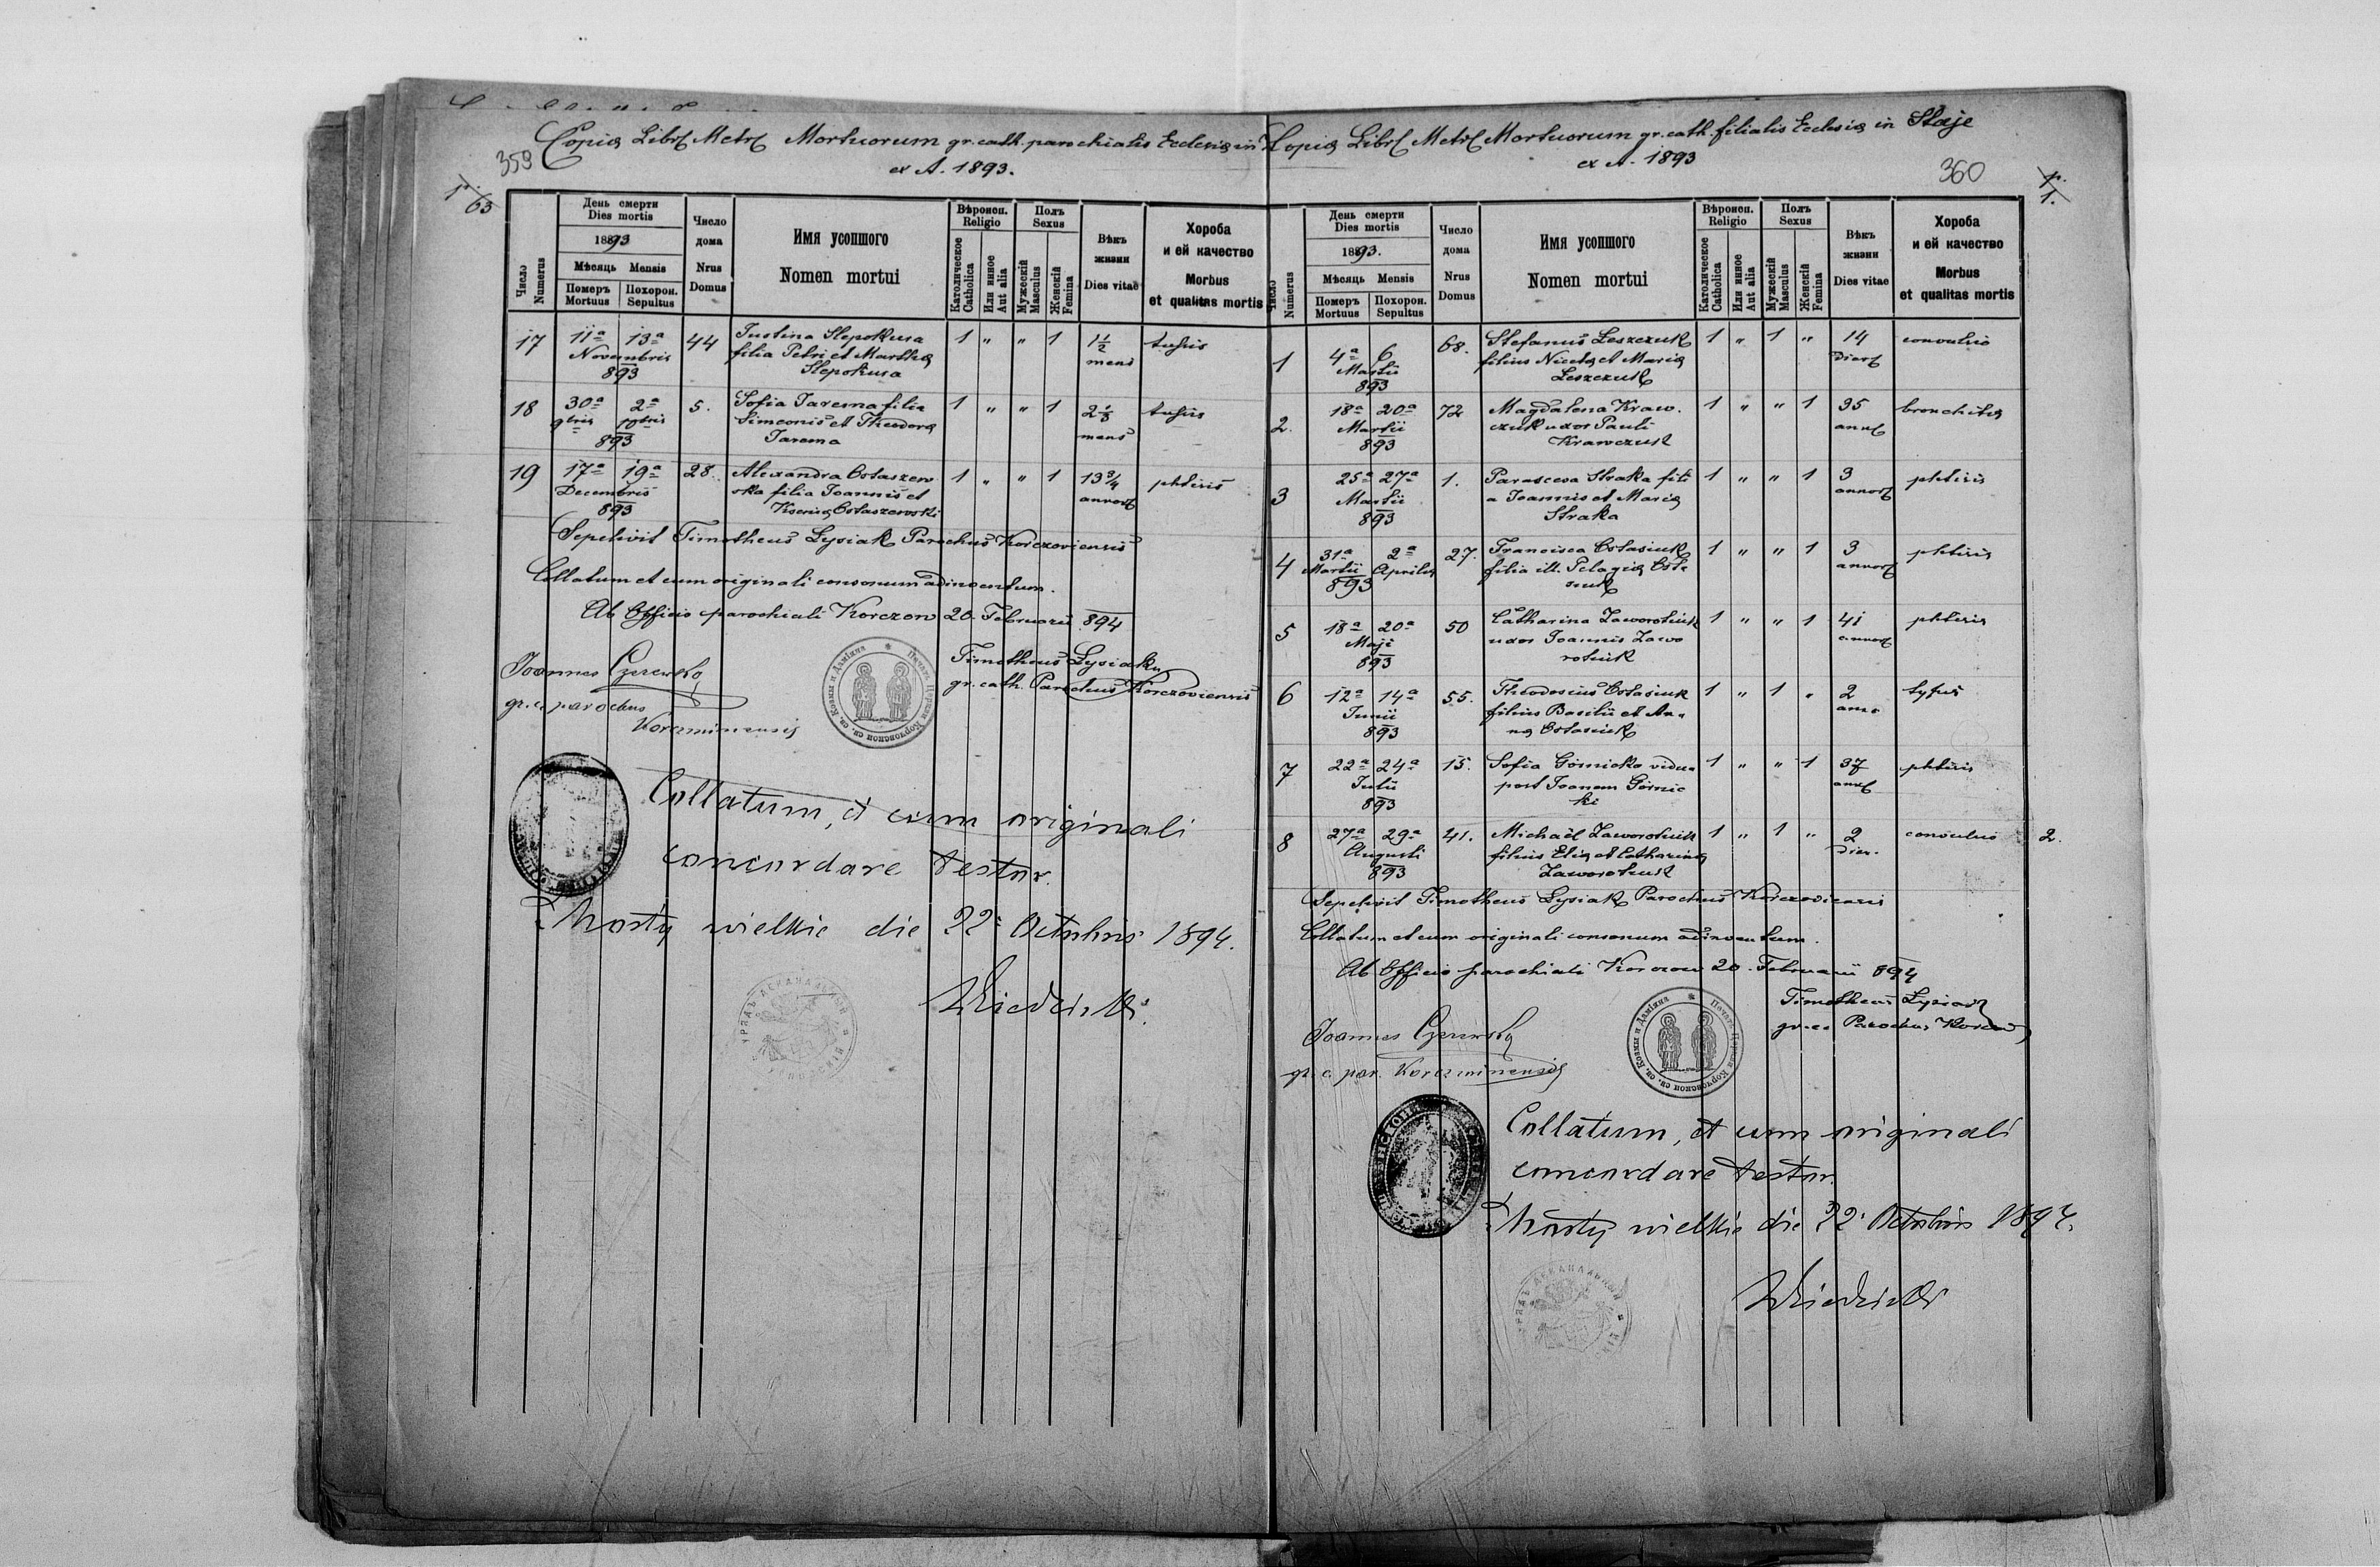 Copia Libr Metr Mortuorum gr. cath. parochialis Ecclesia in
ex A. 1893.
359
63
Число Numerus
День смерти
Dies mortis
1893
Мѣсяць Mensis
Померъ Mortuus
Похорон. Sepultus
Число дома
Nrus Domus
Имя усопшого
Nomen mortui
Вѣроисп. Religio
Католическое Catholica
Или инное Aut alia
Полъ Sexus
Мужескій Masculus
Женскій Femina
Вѣкъ жизни
Dies vitae
Хороба и ей качество
Morbus et qualitas mortis
17 11a 13a 44 Justina Slepokura 1 " " 1 1 1/2 tussis
Novembris filia Petri et Martha mens
893 Slepokura
18 30a 2a 5. Sofia Jarema filia 1 " " 1 2 tussis
9bris 10bris Simeonis et Theodora mens
893 Jarema
19 17a 19a 28. Alexandra Ostaszew 1 " " 1 13 3/4 phtisis
Decembris ska filia Joannis et annor
893 Ksenia Ostaszewski
Sepelivit Timotheus Lysiak Parochus Korczoviensis
Collatum et cum originali consonum adinventum.
Ab Officio parochiali Korczow 20. Februarii 894
Joannes
gr. c. parochus
Korczminensis
Timotheus Lysiak
gr. cath. Parochus Korczoviensis
Collatum, et cum originali
concordare testor.
Mosty wielkie die 22 Octobris 1894.
Copia Libr Metr Mortuorum gr. cath. filialis Ecclesia in Staje
ex A. 1893
360
1.
Число Numerus
День смерти
Dies mortis
1893.
Мѣсяць Mensis
Померъ Mortuus
Похорон. Sepultus
Число дома
Nrus Domus
Имя усопшого
Nomen mortui
Вѣроисп. Religio
Католическое Catholica
Или инное Aut alia
Полъ Sexus
Мужескій Masculus
Женскій Femina
Вѣкъ жизни
Dies vitae
Хороба и ей качество
Morbus et qualitas mortis
1 4a 6 68. Stefanus Leszczuk 1 " 1 " 14 convulsio
Martii filius Niceta et Maria dier
893 Leszczuk
2. 18a 20a 72 Magdalena Kraw. 1 " " 1 35 bronchitis
Martii czuk uxor Pauli ann
893 Krawczuk
3 25a 27a 1. Parasceva Straka fili 1 " " 1 3 phtisis
Martii a Joannis et Maria annor
893 Straka
4 31a 2a 27. Francisca Ostasiuk 1 " " 1 3 phtisis
Martii Aprilis filia ill. Pelagia Osta annor
893 siuk
5 18a 20a 50 Catharina Zaworotiuk 1 " " 1 41 phtisis
Maji uxor Joannis Zawo annor
893 rotiuk
6 12a 14a 55. Theodosius Ostasiuk 1 " 1 " 2 tyfus
Junii filius Basilii et An-
893 na Ostasiuk
7 22a 24a 15. Sofia Górnicka vidua 1 " " 1 37 phtisis
Julii post Joanem Górnic
893 ki
8 27a 29a 41. Michaël Zaworotiuk 1 " 1 " 2 convulsio 2.
Augusti filius Elia et Catharina dier.
893 Zaworotiuk
Sepelivit Timotheus Lysiak Parochus Korczoviensis
Collatum et cum originali consonum adinventum.
Ab Officio parochiali Korczow 20. Februarii 894
Timotheus Lysiak
gr. c. Parochus
Joannes
gr. c. par. Korczminensis
Collatum, et cum originali
concordare testor.
Mosty wielkie die 22 Octobris 1894.